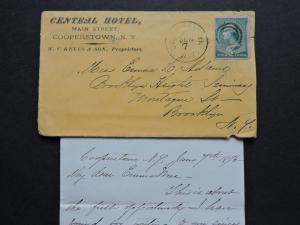 CENTRAL HOTEL,
MAIN STREET,
COOPERSTOWN, N.Y.
W. C. KEYES & SON, Proprietors.
7
Miss Emma L. Adams
Brooklyn Heights Seminary
Montague St
Brooklyn
N. Y.
Cooperstown N.Y. June 7th
My dear Emma
This is about
the first opportunity I have
found for writing to you since